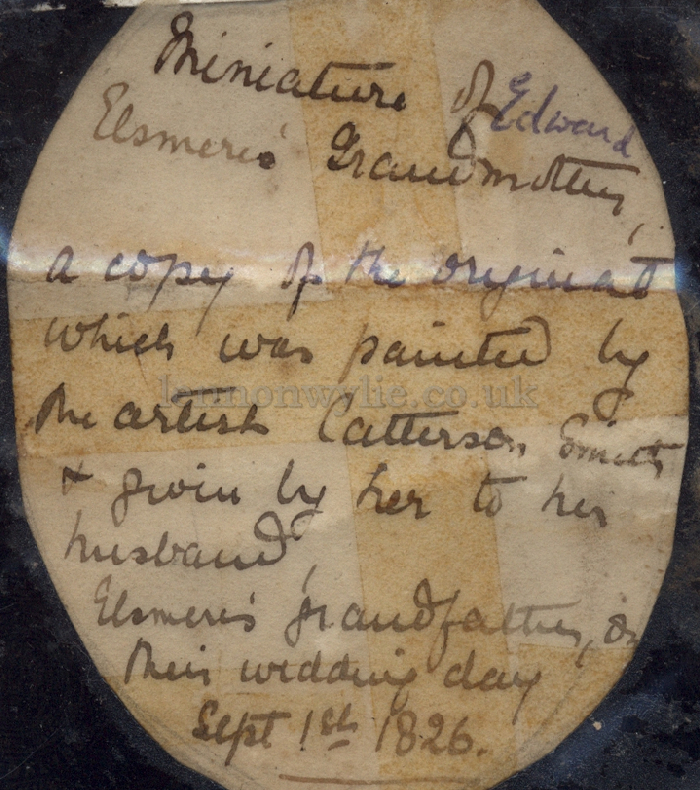 Miniature of Edward
Elsmere's Grandmother,
a copy of the original
which was painted by
the artist Catterson Smith
& given by her to her
husband,
Elsmere's grandfather, on
their wedding day
Sept 1st 1826.
lennonwylie.co.uk